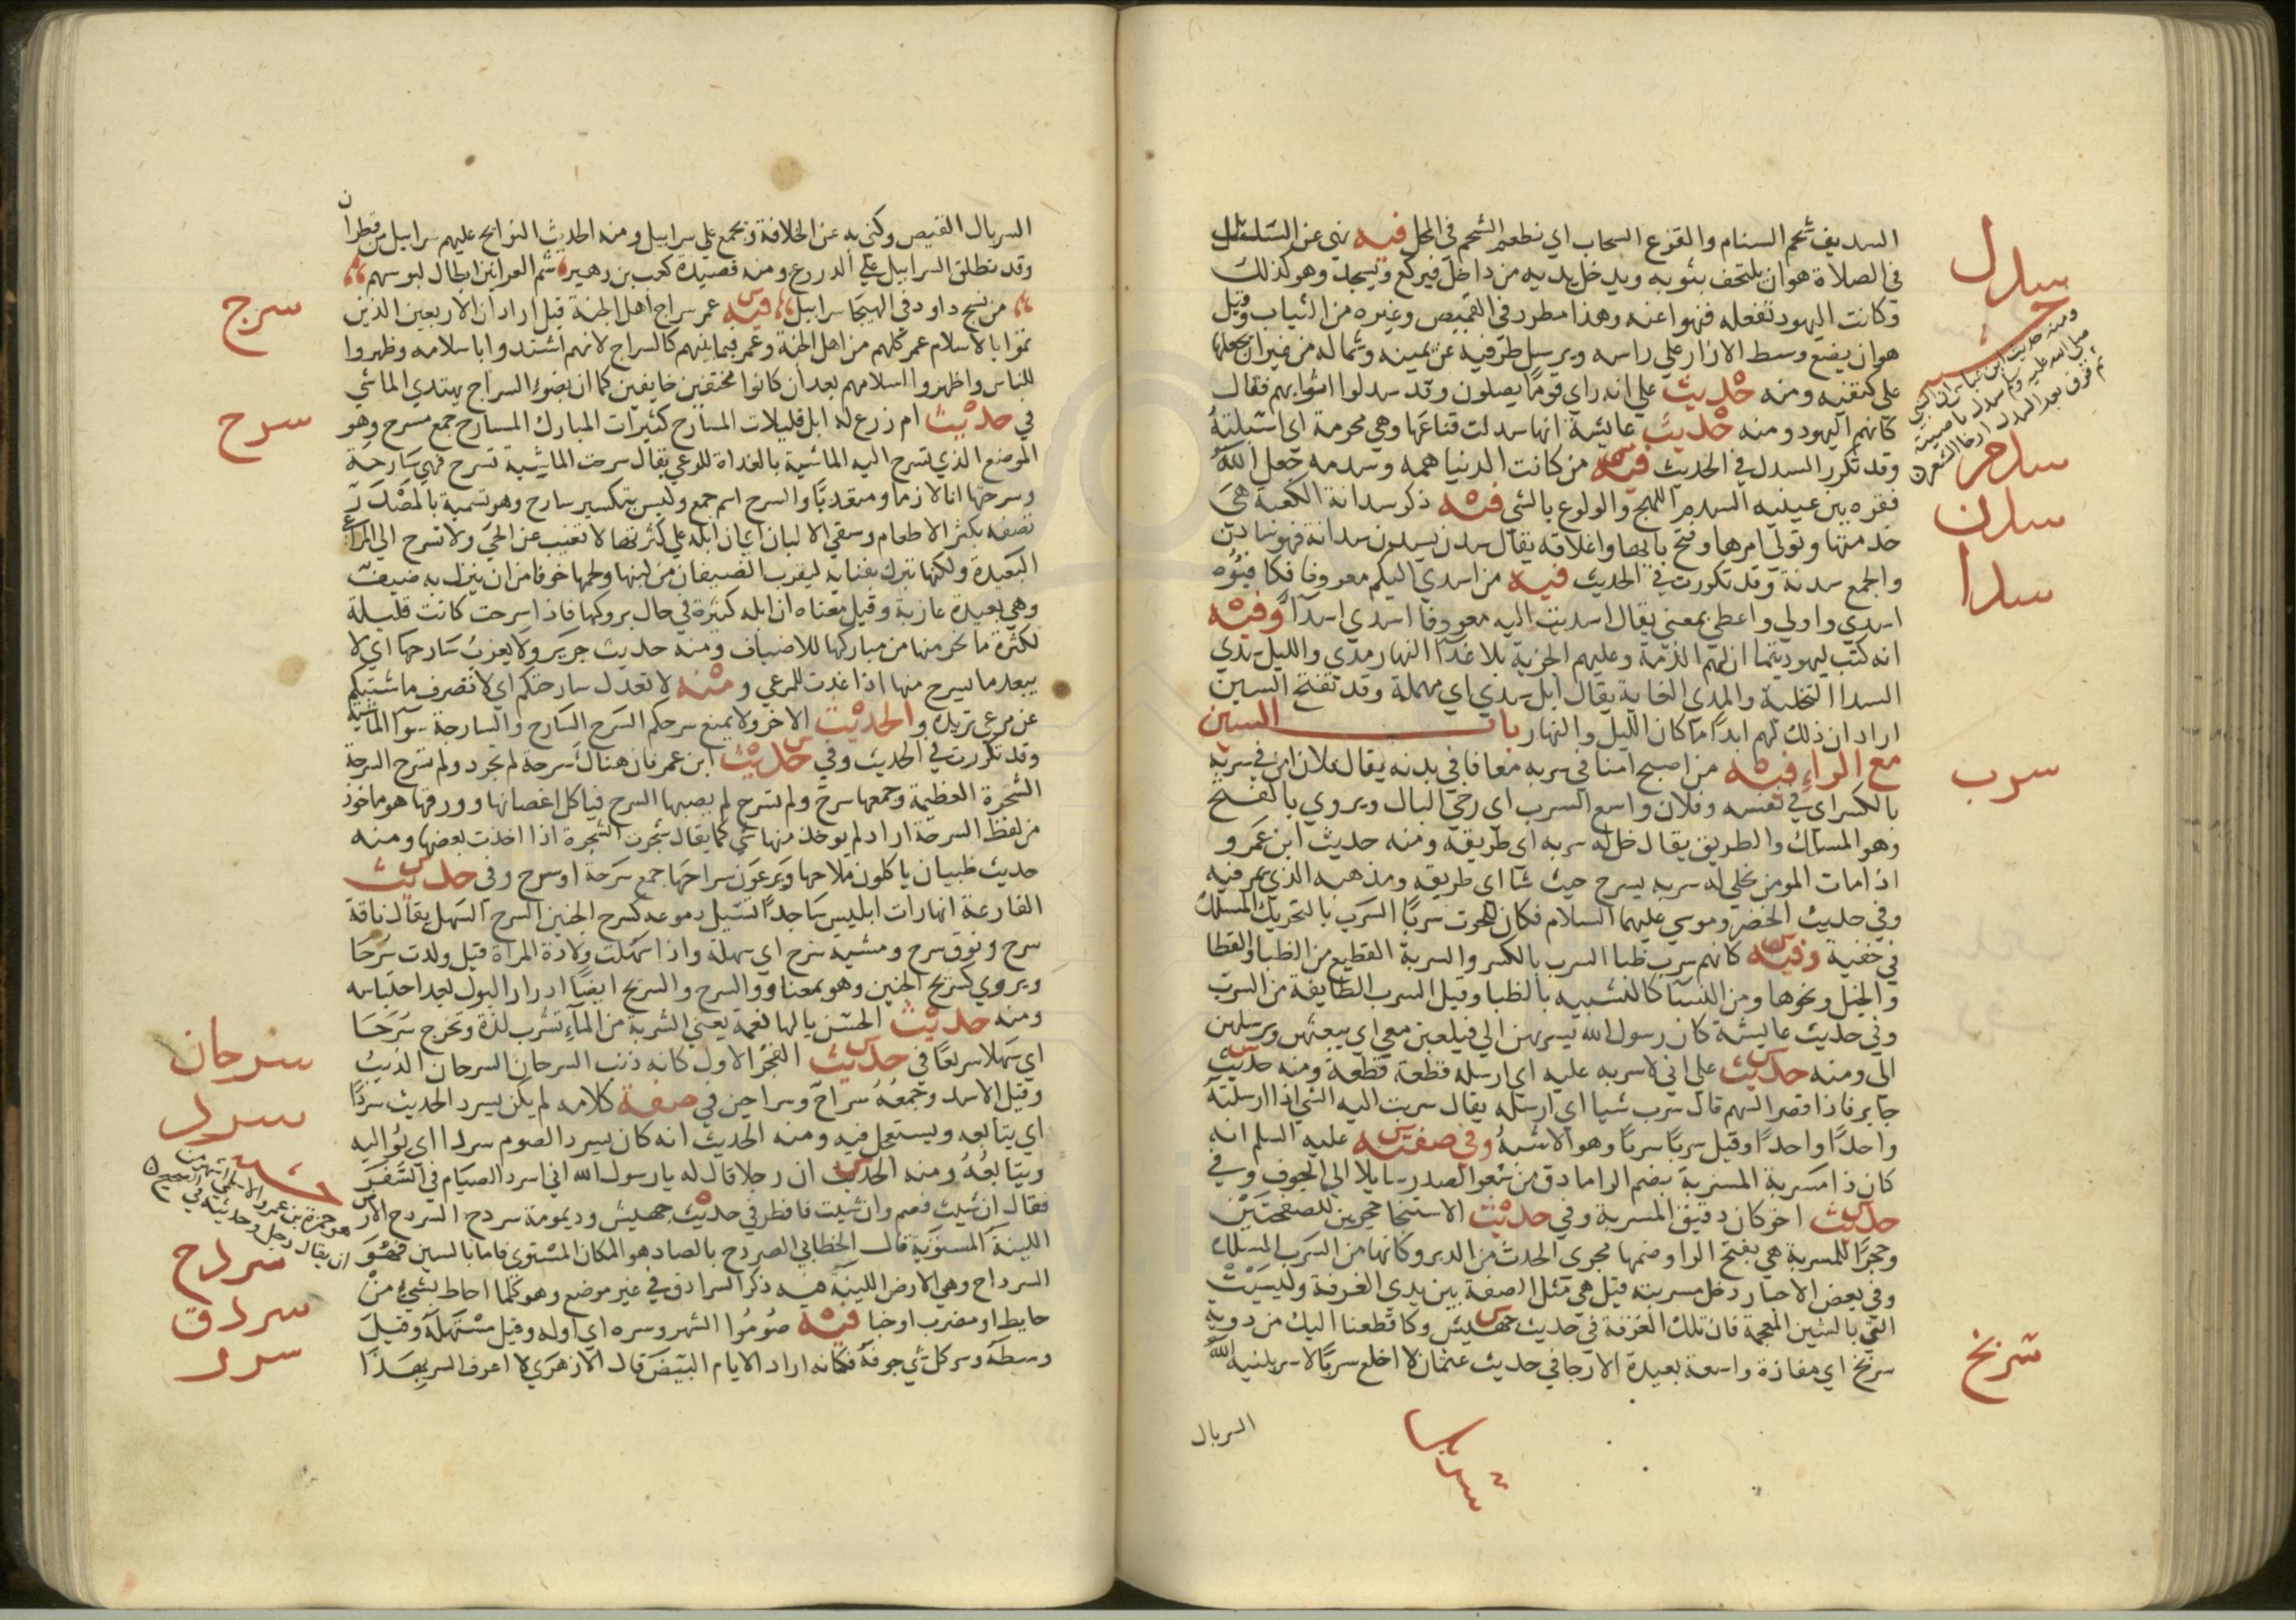 السديف شحم السنام والقزع السحاب اي نطعم الشحم في المحل فيه نهي عن السدل
في الصلاة هو ان يلتحف بثوبه ويدخل يديه من داخل فيركع ويسجد وهو كذلك
وكانت اليهود تفعله فنهوا عنه وهذا مطرد في القميص وغيره من الثياب وقيل
هو ان يضع وسط الازار علي راسه ويرسل طرفيه عن يمينه وشماله من غير ان يجعلها
علي كتفيه ومنه حديث علي انه راي قوما يصلون وقد سدلوا اثوابهم فقال
كانهم اليهود ومنه حديث عايشة انها سدلت قناعها وهي محرمة اي اسبلته
وقد تكرر السدل في الحديث فيه من كانت الدنيا همه وسدمه جعل الله
فقره بين عينيه السدم اللهج والولوع بالشي فيه ذكر سدانة الكعبة هي
خدمتها وتولي امرها وفتح بابها واغلاقه يقال سدن يسدن سدانة فهو سادن
والجمع سدنة وقد تكررت في الحديث فيه من اسدي اليكم معروفا فكافيوه
اسدي واولي واعطي بمعني يقال اسديت اليه معروفا اسدي اسدا وفيه
انه كتب ليهود تيما ان لهم الذمة وعليهم الجزية بلا عدا النهار مدي والليل سدي
السدا التخلية والمدي الغاية يقال ابل سدي اي مهملة وقد تفتح السين
اراد ان ذلك لهم ابدا ما كان الليل والنهار باب السين
مع الراء فيه من اصبح امنا في سربه معافا في بدنه يقال فلان امن في سربه
بالكسر اي في نفسه وفلان واسع السرب اي رخي البال ويروي بالفتح
وهو المسلك والطريق يقال خل له سربه اي طريقه ومنه حديث ابن عمرو
اذا مات المومن تخلي له سربه يسرح حيث شا اي طريقه ومذهبه الذي يمر فيه
وفي حديث الخضر وموسي عليهما السلام فكان للحوت سربا السرب بالتحريك المسلك
في خفية وفيه كانهم سرب ظبا السرب بالكسر والسربة القطيع من الظبا والقطا
والخيل ونحوها ومن النسا كالتشبيه بالظبا وقيل السرب الطايفة من السرب
وفي حديث عايشة كان رسول الله يسربهن الي فيلعبن معي اي يبعثهن ويرسلهن
الي ومنه حديث علي اني لاسربه عليه اي ارسله قطعة قطعة ومنه حديث
جابر فاذا قصر السهم قال سرب شيا اي ارسله يقال سربت اليه الشي اذا ارسلته
واحدا واحدا وقيل سربا سربا وهو الاشبه وفي صفته عليه السلم انه
كان ذا مسربة المسربة بضم الرا ما دق من شعر الصدر سايلا الي الجوف وفي
حديث اخر كان دقيق المسربة وفي حديث الاستنجا حجرين للصفحتين
وحجرا للمسربة هي بفتح الرا وضمها مجري الحدث من الدبر وكانها من السرب المسلك
وفي بعض الاخبار دخل مسربته قيل هي مثل الصفة بين يدي الغرفة وليست
التي بالشين المعجمة فان تلك الغرفة في حديث جهيش وكا قطعنا اليك من دوية
سربخ اي مفازة واسعة بعيدة الارجا في حديث عثمان لا اخلع سربالا سربلنيه الله
السربال
سدل
ومنه حديث ابن عباس ان النبي
صلى الله عليه وسلم سدل ناصيته
ثم فرق بعد السدل ارخا الشعر
سدم
سدن
سدا
سرب
سربخ
السربال القميص وكني به عن الخلافة ويجمع علي سرابيل ومنه الحديث النوايح عليهم سرابيل من قطران
وقد تطلق السرابيل علي الدروع ومنه قصيدة كعب بن زهير شم العرانين ابطال لبوسهم
من نسج داود في الهيجا سرابيل فيه عمر سراج اهل الجنة قيل اراد ان الاربعين الذين
تموا بالاسلام عمر كلهم من اهل الجنة وعمر فيما بينهم كالسراج لانهم اشتدوا باسلامه وظهروا
للناس واظهروا اسلامهم بعد ان كانوا مختفين خايفين كما ان بضوء السراج يهتدي الماشي
في حديث ام زرع له ابل قليلات المسارح كثيرات المبارك المسارح جمع مسرح وهو
الموضع الذي تسرح اليه الماشية بالغداة للرعي يقال سرحت الماشية تسرح فهي سارحة
وسرحتها انا لازما ومتعديا والسرح اسم جمع وليس بتكسير سارح وهو تسمية بالمصدر
تصفه بكثر الاطعام وسقي الالبان اي ان ابله علي كثرتها لا تغيب عن الحي ولا تسرح الي المراعي
البعيدة ولكنها تبرك بفنايه ليقرب الضيفان من لبنها ولحمها خوفا من ان ينزل به ضيف
وهي بعيدة عازبة وقيل معناه ان ابله كثيرة في حال بروكها فاذا سرحت كانت قليلة
لكثرة ما نحر منها من مباركها للاضياف ومنه حديث جرير ولا يعزب سارحها اي لا
يبعد ما يسرح منها اذا غدت للمرعي ومنه لا تعدل سارحتكم اي لا تصرف ماشيتكم
عن مرعي تريده والحديث الاخر ولا يمنع سرحكم السرح السارح والسارحة سوا الماشية
وقد تكررت في الحديث وفي حديث ابن عمر فان هناك سرحة لم تجرد ولم تسرح السرحة
الشجرة العظيمة وجمعها سرح ولم تسرح لم يصبها السرح فياكل اغصانها وورقها هو ماخوذ
من لفظ السرحة اراد لم يوخذ منها شي كما يقال شجرت الشجرة اذا اخذت بعضها ومنه
حديث ظبيان ياكلون ملاحها ويرعون سراحها جمع سرحة او سرح وفي حديث
الفارعة انها رات ابليس ساجدا تسيل دموعه كسرح الجنين السرح السهل يقال ناقة
سرح ونوق سرح ومشية سرح اي سهلة واذا سهلت ولادة المراة قيل ولدت سرحا
ويروي كسريح الجنين وهو بمعناه والسرح والسريح ايضا ادرار البول بعد احتباسه
ومنه حديث الحسن يا لها نعمة يعني الشربة من الماء تشرب لذة وتخرج سرحا
اي سهلا سريعا في حديث الفجر الاول كانه ذنب السرحان السرحان الذيب
وقيل الاسد وجمعه سراح وسراحين في صفة كلامه لم يكن يسرد الحديث سردا
اي يتابعه ويستعجل فيه ومنه الحديث انه كان يسرد الصوم سردا اي يواليه
ويتابعه ومنه الحديث ان رجلا قال له يا رسول الله اني اسرد الصيام في السفر
فقال ان شيت فصم وان شيت فافطر في حديث جهيش وديمومة سردح السردح الارض
اللينة المستوية قال الخطابي الصردح بالصاد هو المكان المستوي فاما بالسين فهو
السرداح وهي الارض اللينة فيه ذكر السرادق في غير موضع وهو كلما احاط بشيء من
حايط او مضرب او خبا فيه صوموا الشهر وسره اي اوله وقيل مستهله وقيل
وسطه وسر كل شي جوفه فكانه اراد الايام البيض قال الازهري لا اعرف السر بهذا
سرج
سرح
سرحان
سرد
هو حمزة بن عمرو الاسلمي اشهر من
ان يقال رجل وحديثه في الصحيح
سردح
سردق
سرر